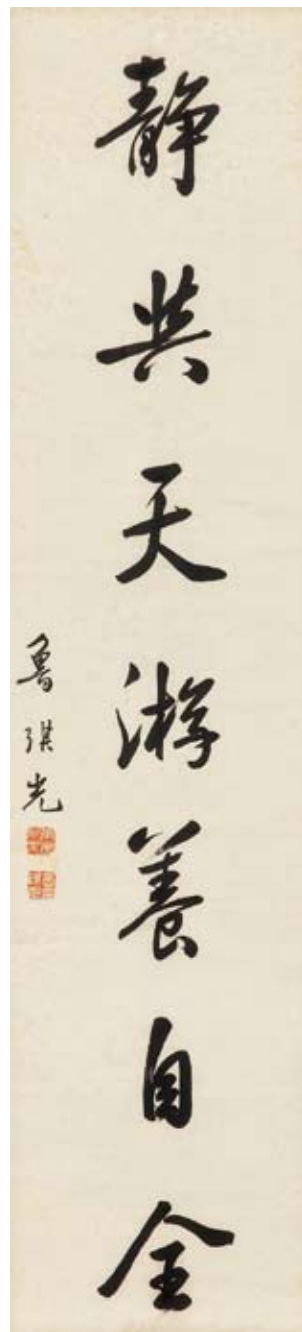 静共天游養自全
魯琪光